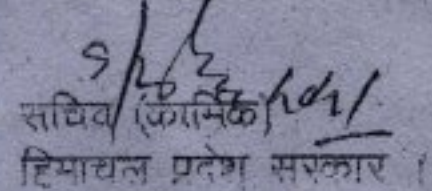 सचिव (कार्मिक)
हिमाचल प्रदेश सरकार ।